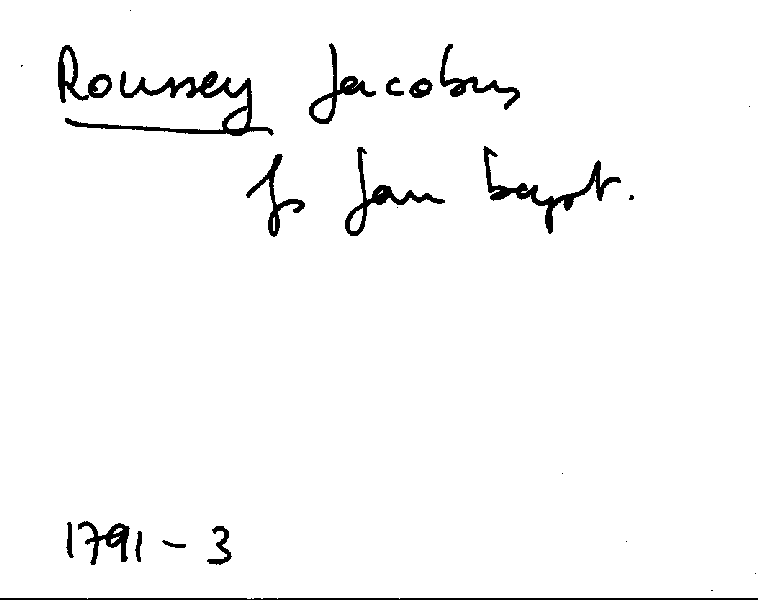 Roussey Jacobus
fs Jan bapt.
1791 - 3